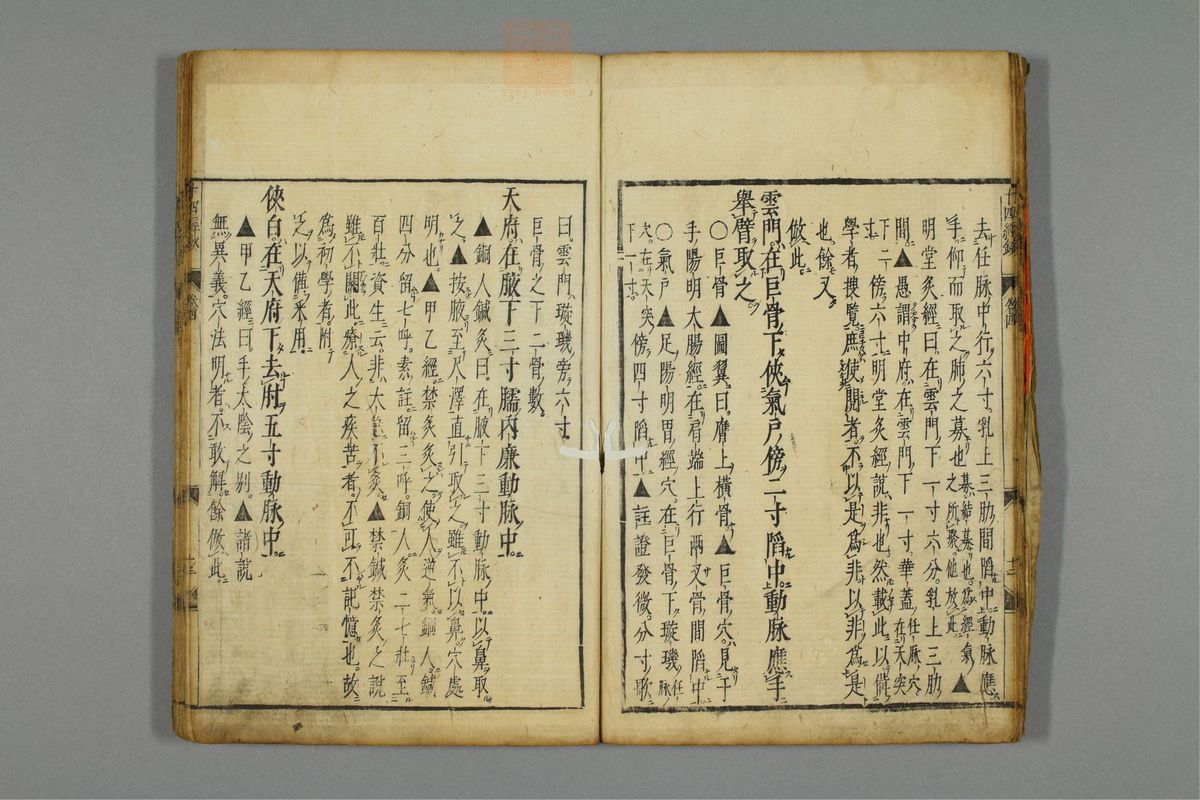 去任脉中行六寸乳上三肋間䧟中動脉應
手仰而取之肺之募也募結募也爲經氣之所聚他放此▲
明堂灸經曰在雲門下一寸六分乳上三肋
間▲愚謂中府在雲門下一寸華蓋任脉穴在天突
下二寸傍六寸明堂灸經說非也然載此以備
學者捜覧庶使聞者不以是爲非以非爲是
也餘又
倣此
雲門在巨骨下俠氣戶傍二寸䧟中動脉應手
舉臂取之
〇巨骨▲圖翼曰膺上横骨▲巨骨穴見于
手陽明大腸經在肩端上行兩叉骨間䧟中
〇氣戶▲足陽明胃經穴在巨骨下璇璣任脉
穴在天突下一寸傍四寸䧟中▲註證發微分寸歌
曰雲門璇璣旁六寸
巨骨之下二骨數
天府在腋下三寸臑内廉動脉中
▲銅人鍼灸曰在腋下三寸動脉中以鼻取
之▲按腋至尺澤直引取之雖不以鼻穴處
明也▲甲乙經禁灸灸之使人逆氣銅人鍼
四分留七呼素註留三呼銅人灸二七壯至
百壯資生云非大急不灸▲禁鍼禁灸之說
雖不關此療人之疾苦者不可不記憶也故
爲初學者附
之以備釆用
俠白在天府下去肘五寸動脉中
▲甲乙經曰手太陰之別▲諸說
無異義穴法明者不敢解餘倣此